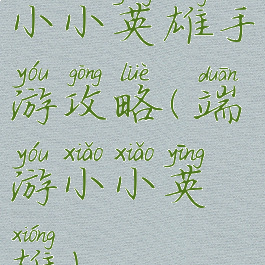 小小英雄手
yóu gōng lüè duān
游攻略(端
yóu xiǎo xiǎo yīng
游小小英
xióng
雄)